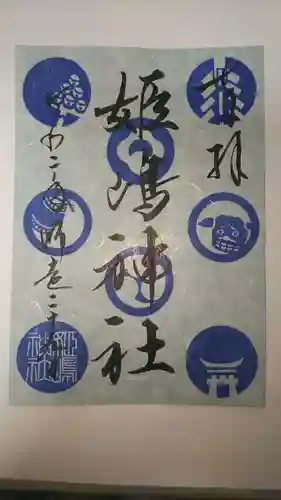 奉拝
姫嶋神社
令和二年師走二十四日
姫嶋神社